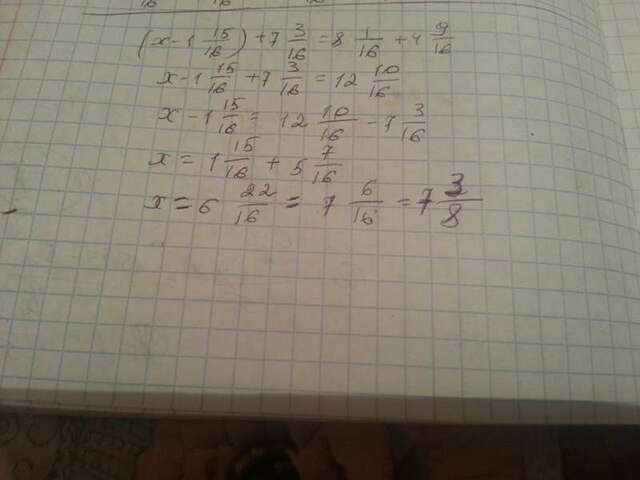 (x - 1 15/16) + 7 3/16 = 8 1/16 + 4 9/16
x - 1 15/16 + 7 3/16 = 12 10/16
x - 1 15/16 = 12 10/16 - 7 3/16
x = 1 15/16 + 5 7/16
x = 6 22/16 = 7 6/16 = 7 3/8